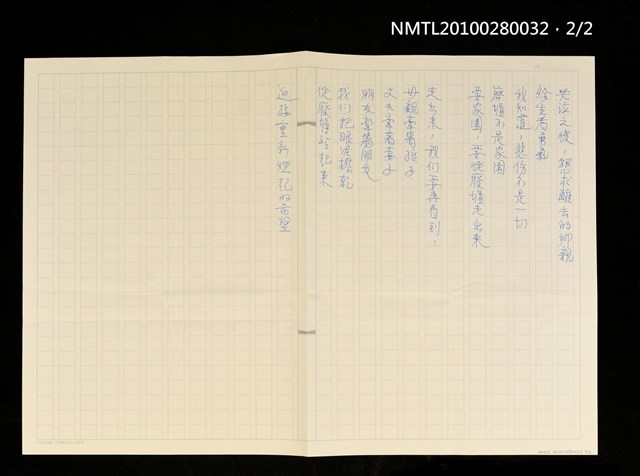 NMTL20100280032 · 2/2
哭泣之後，懇求離去的鄉親
給生者勇氣
我知道，悲伤不是一切
廢墟不是家園
要家園，要從廢墟走出來
走出來，我们要再看到：
母親牽著孩子
丈夫牽著妻子
朋友牽著朋友
我们把眼淚擦乾
從廢墟站起來
迎接重新燃起的希望